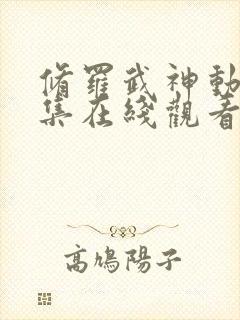 脩羅武神動
集在綫觀看
高鳩陽子